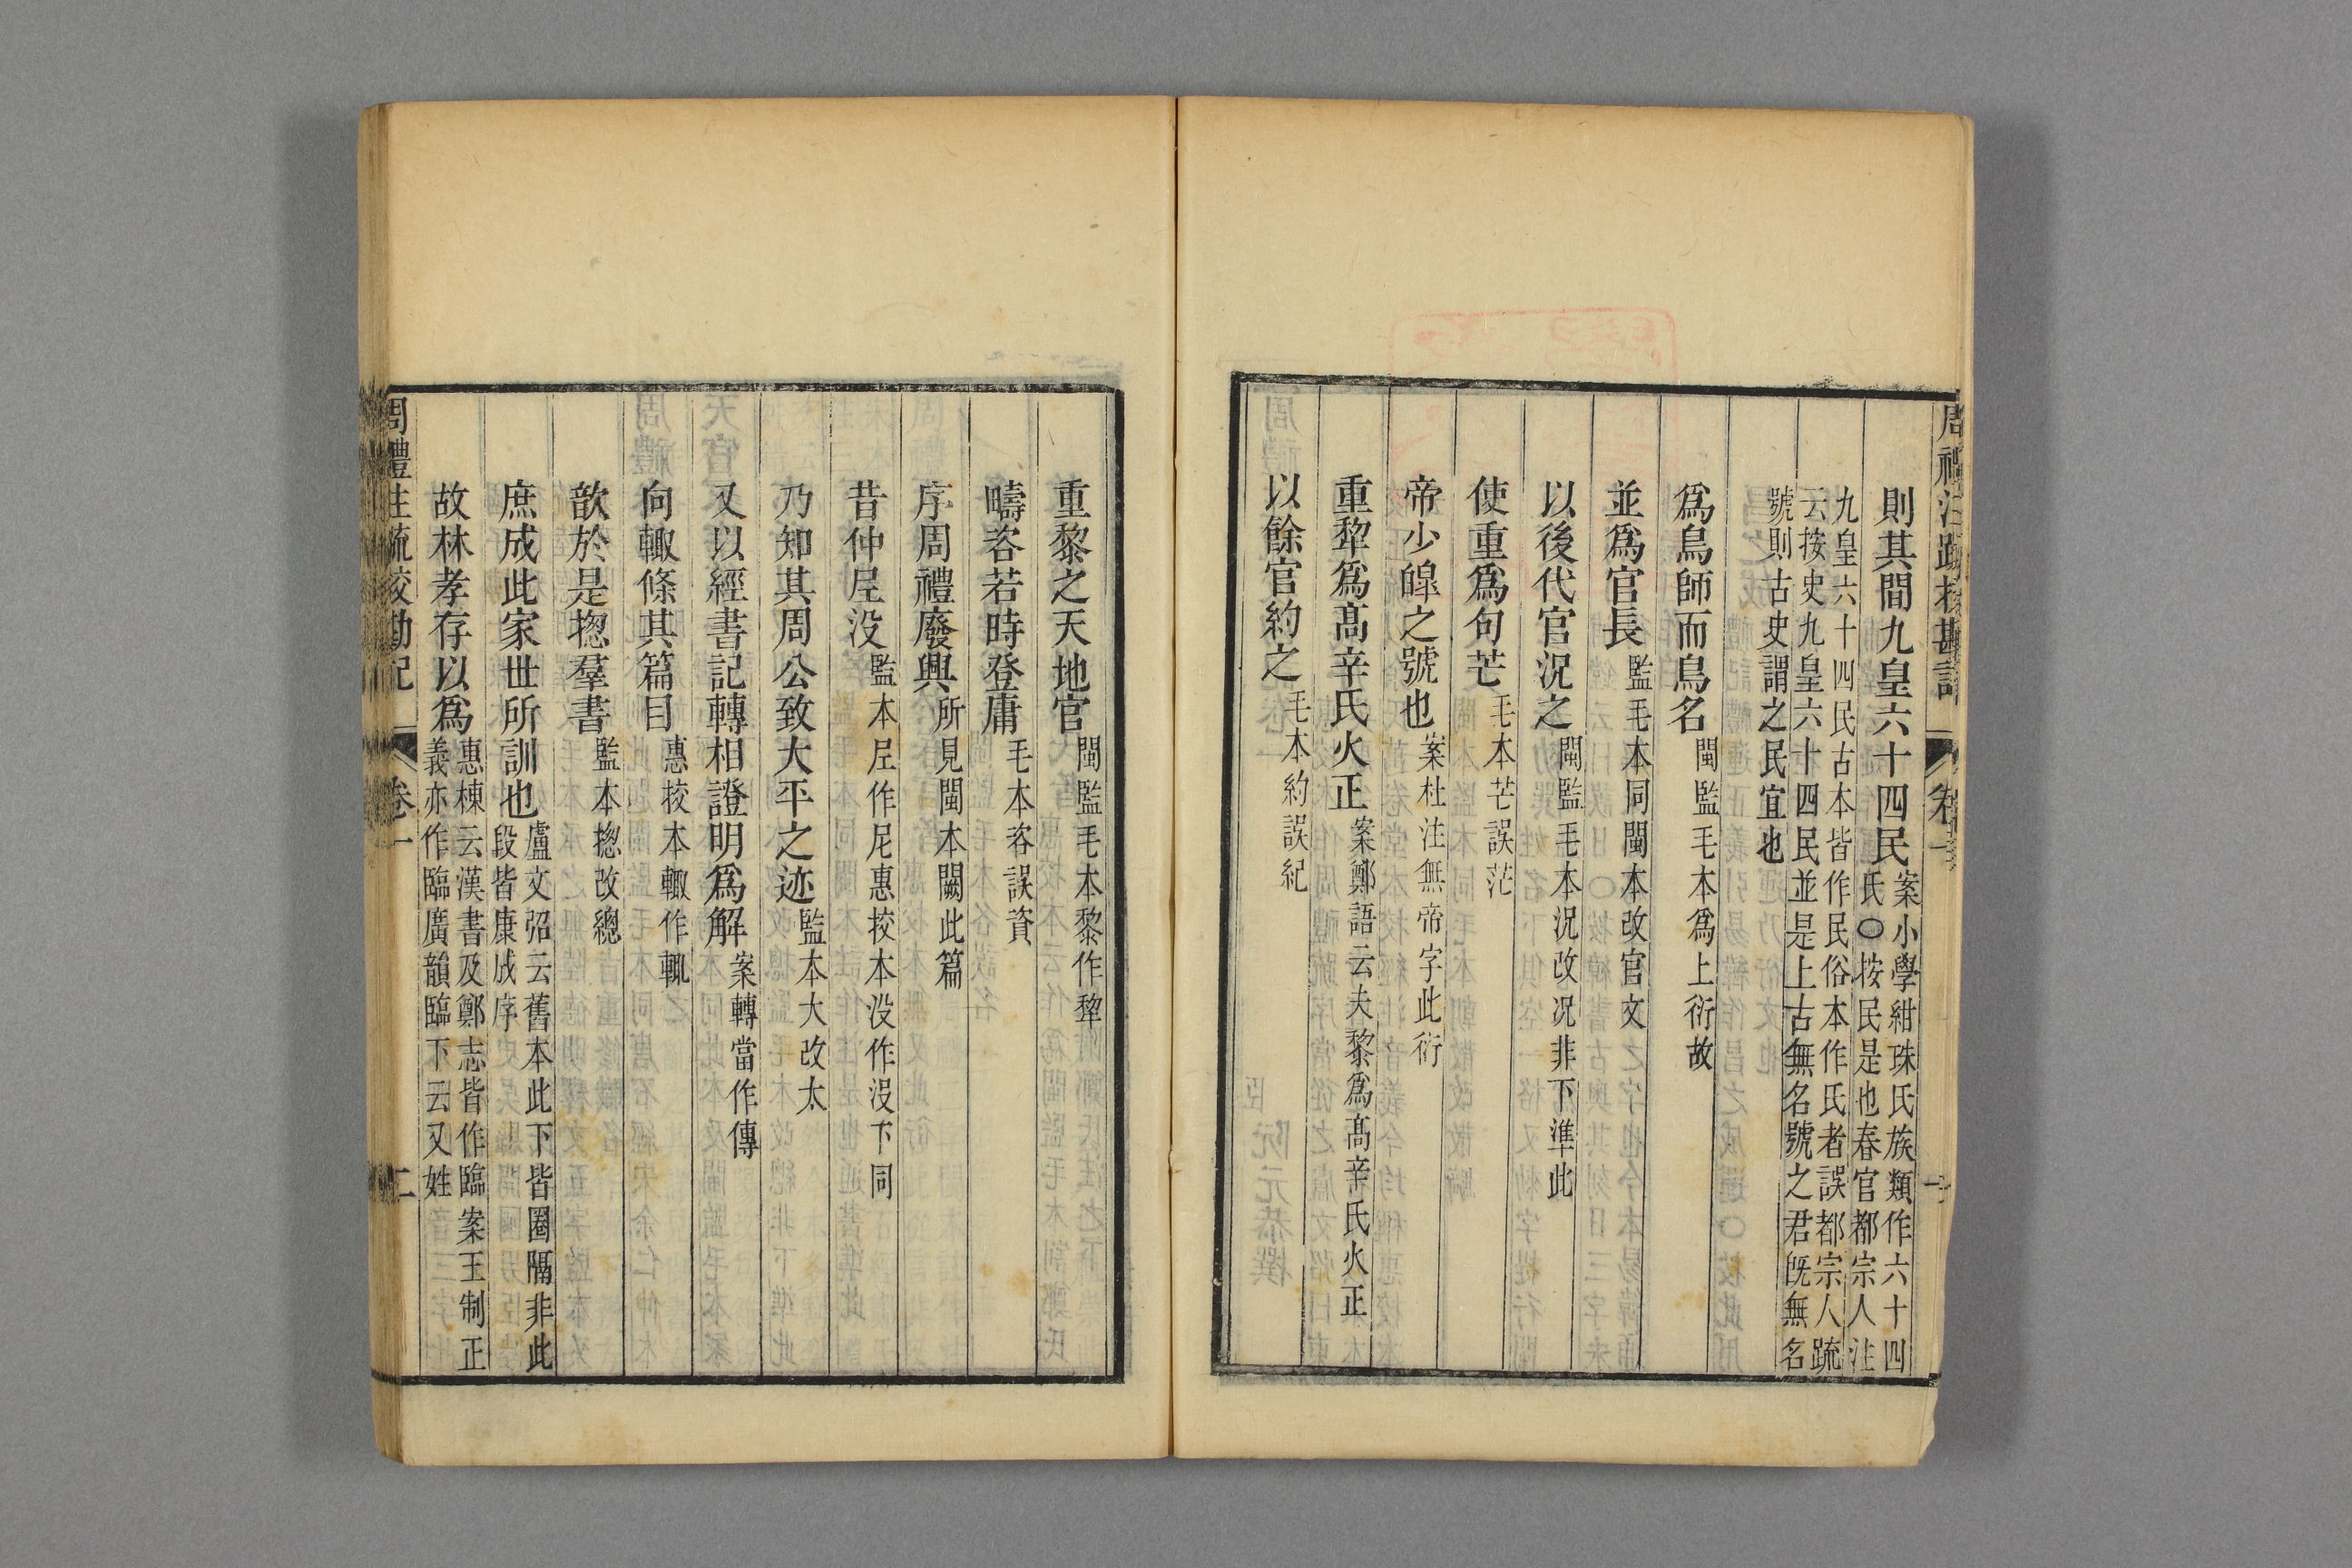 周禮注疏校勘記 卷一 一
則其間九皇六十四民案小學紺珠氏族類作六十四
氏○按民是也春官都宗人注
九皇六十四民古本皆作民俗本作氏者誤都宗人疏
云按史九皇六十四民並是上古無名號之君旣無名
號則古史謂之民宜也
爲鳥師而鳥名閩監毛本爲上衍故
並爲官長監毛本同閩本改官文
以後代官況之閩監毛本況改况非下準此
使重爲句芒毛本芒誤茫
帝少皥之號也案杜注無帝字此衍
重犂爲高辛氏火正案鄭語云夫黎爲高辛氏火正
以餘官約之毛本約誤紀
重黎之天地官閩監毛本黎作犂
疇咨若時登庸毛本咨誤資
序周禮廢興所見閩本闕此篇
昔仲𡰥没監本𡰥作尼惠挍本没作沒下同
乃知其周公致大平之迹監本大改太
又以經書記轉相證明爲解案轉當作傳
向輙條其篇目惠挍本輙作輒
歆於是揔羣書監本揔改總
庶成此家世所訓也盧文弨云舊本此下皆圈隔非此
段皆康成序
故林孝存以爲惠棟云漢書及鄭志皆作臨案王制正
義亦作臨廣韻臨下云又姓
周禮注疏校勘記 卷一 二